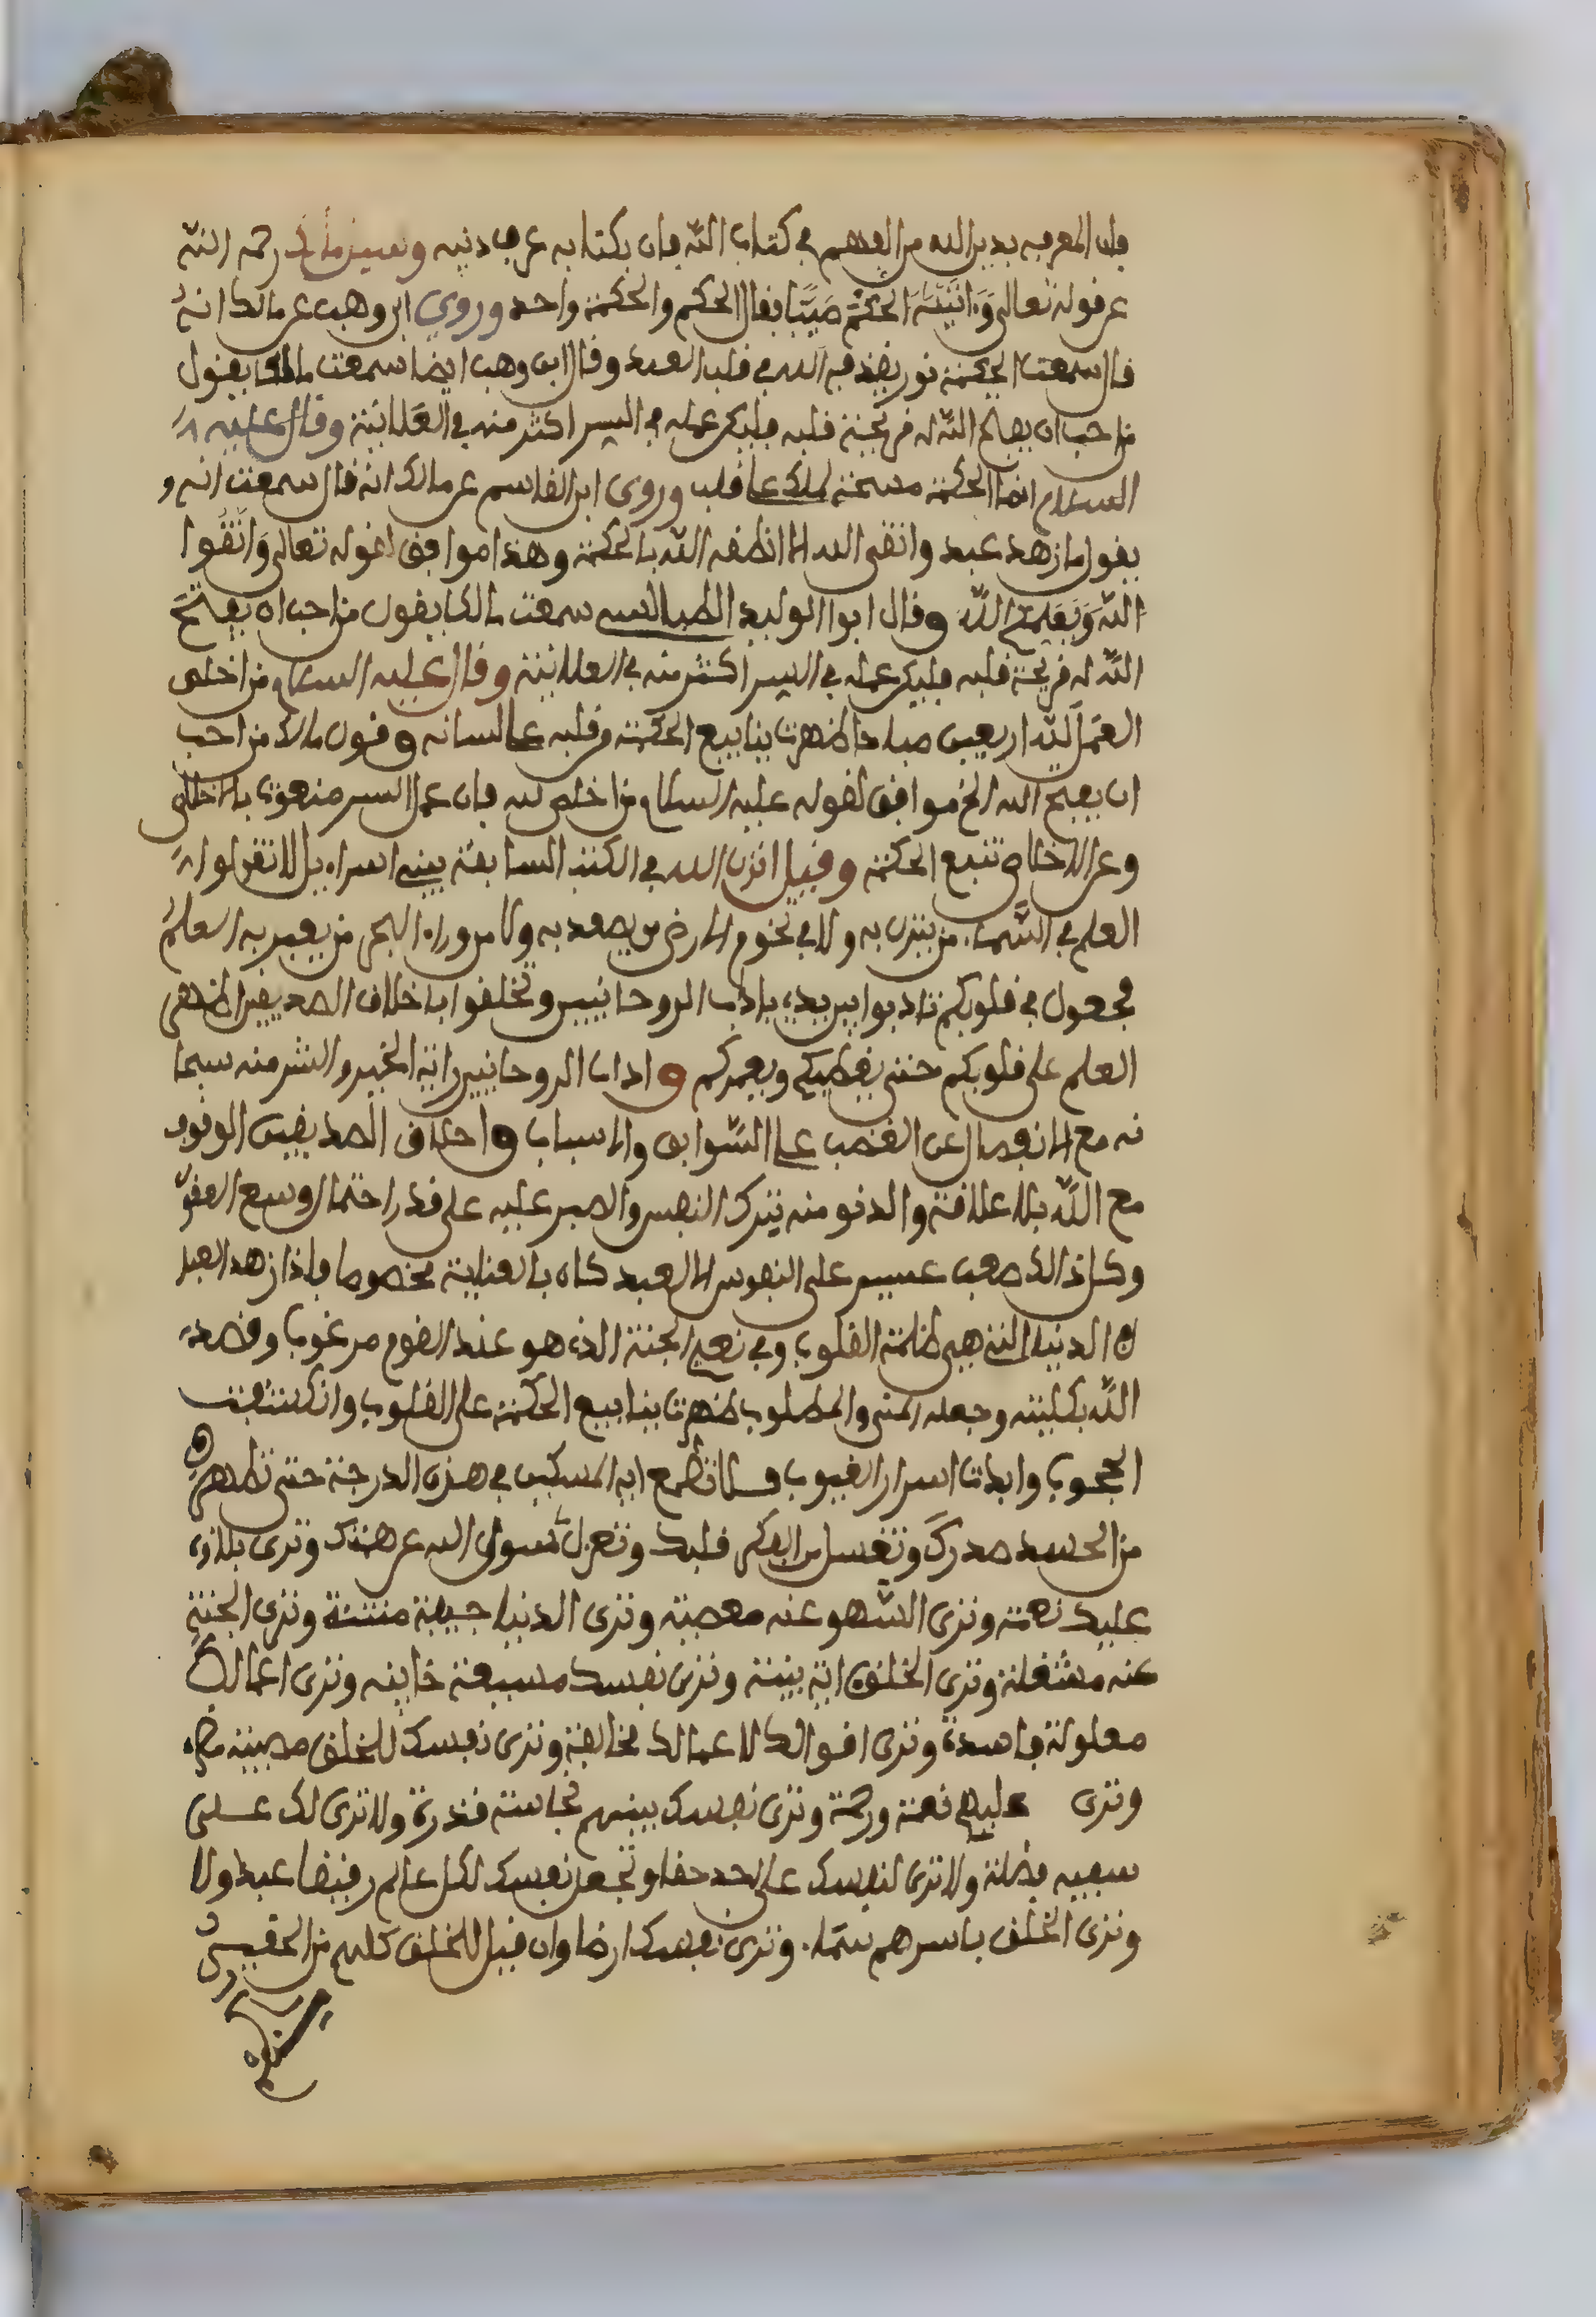 فإن المعرفة بدين الله من الفهم في كتاب الله فإن بكتابه عرف دينه وسيل مالك رحمه الله
عن قوله تعالى وَءَاتَيْنَٰهُ الْحُكْمَ صَبِيًّا فقال الحكم والحكمة واحد وروى ابن وهب عن مالك انه
قال سمعت الحكمة نور يقذفه الله في قلب العبد وقال ابن وهب ايضا سمعت مالكا يقول
من احب ان يفتح الله له فرجة في قلبه فليكن عمله في السر اكثر منه في العلانية وقال عليه
السلام انما الحكمة مسحة ملك على قلب وروى ابن القاسم عن مالك انه قال سمعت انه و
يقول ما زهد عبد واتقى الله الا انطقه الله بالحكمة وهذا موافق لقوله تعالى وَاتَّقُوا
اللَّه وَيُعَلِّمُكُم اللَّه وقال ابوا الوليد الطيالسي سمعت مالكا يقول من احب ان يفتح
الله له فرجة في قلبه فليكن عمله في السر اكثر منه في العلانية وقال عليه السلام من اخلص
العمل لله اربعين صباحا ظهرت ينابيع الحكمة من قلبه على لسانه وقول مالك من احب
ان يفتح الله الخ موافق لقوله عليه السلام من اخلص لله فإن عمل السر منعوت بالاخلاص
وعن الاخلاص تنبع الحكمة وقيل انزل الله في الكتب السابقة يبني اسراءيل لا تقولوا
العلم في السماء من ينزل به ولا في تخوم الارض من يصعد به ولا من وراء البحر من يعبر به العلم
مجعول في قلوبكم تادبوا بين يدي باداب الروحانيين وتخلقوا باخلاق الصديقين اظهر
العلم على قلوبكم حتى يغطيكم ويغمركم واداب الروحانيين رؤية الخير والشر منه سبحا
نه مع الانفصال عن الغضب على السوابق والاسباب واخلاق الصديقين الوقوف
مع الله بلا علاقة والدنو منه بترك النفس والصبر عليه على قدر احتمال وسع العقو
وكل ذالك صعب عسير على النفوس الا لعبد كان بالعناية مخصوصا فإذا زهد العبد
في الدنيا التي هي ظلمة القلوب وفي نعيم الجنة الذي هو عند القوم مرغوب وقصد
الله بكليته وجعله المنى والمطلوب ظهرت ينابيع الحكمة على القلوب وانكشفت
الحجوب وابدت اسرار الغيوب فلا تطمع ايه المسكين في هذه الدرجة حتى تطهر
من الحسد صدرك وتغسل من الفكر قلبك وتعزل سوى الله عن همتك وترى بلاءه
عليك نعمة وترى السهو عنه معصية وترى الدنيا جيفة منتنة وترى الجنة
عنه مشغلة وترى الخلق اية بينة وترى نفسك مسبعة خاينه وترى اعمالك
معلولة فاسدة وترى اقوالك لاعمالك مخالفة وترى نفسك للخلق مصيبة
وترى عليهم نعمة ورحمة وترى نفسك بينهم نجاسة قذرة ولا ترى لك على
سفيه فضلة ولا ترى لنفسك على احد حقا وتجعل نفسك لكل عالم رفيقا عبدا ولا
وترى الخلق باسرهم سماء وترى نفسك ارضا وان قيل للخلق كلهم من الحقير